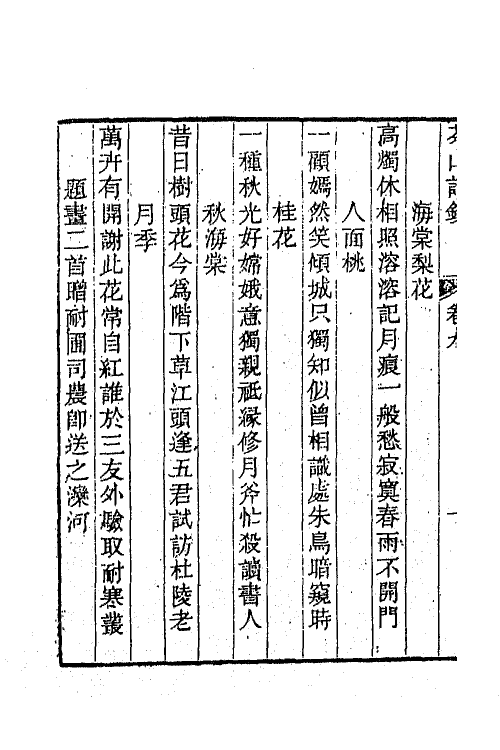 詩鈔 卷九
海棠梨花
高燭休相照溶溶記月痕一般愁寂寞春雨不開門
人面桃
一顧嫣然笑傾城只獨知似曾相識處朱鳥暗窺時
桂花
一種秋光好嫦娥意獨親祗緣修月斧忙殺讀書人
秋海棠
昔日樹頭花今爲階下草江頭逢五君試訪杜陵老
月季
萬卉有開謝此花常自紅誰於三友外驗取耐寒叢
題畫二首贈耐圃司農卽送之灤河